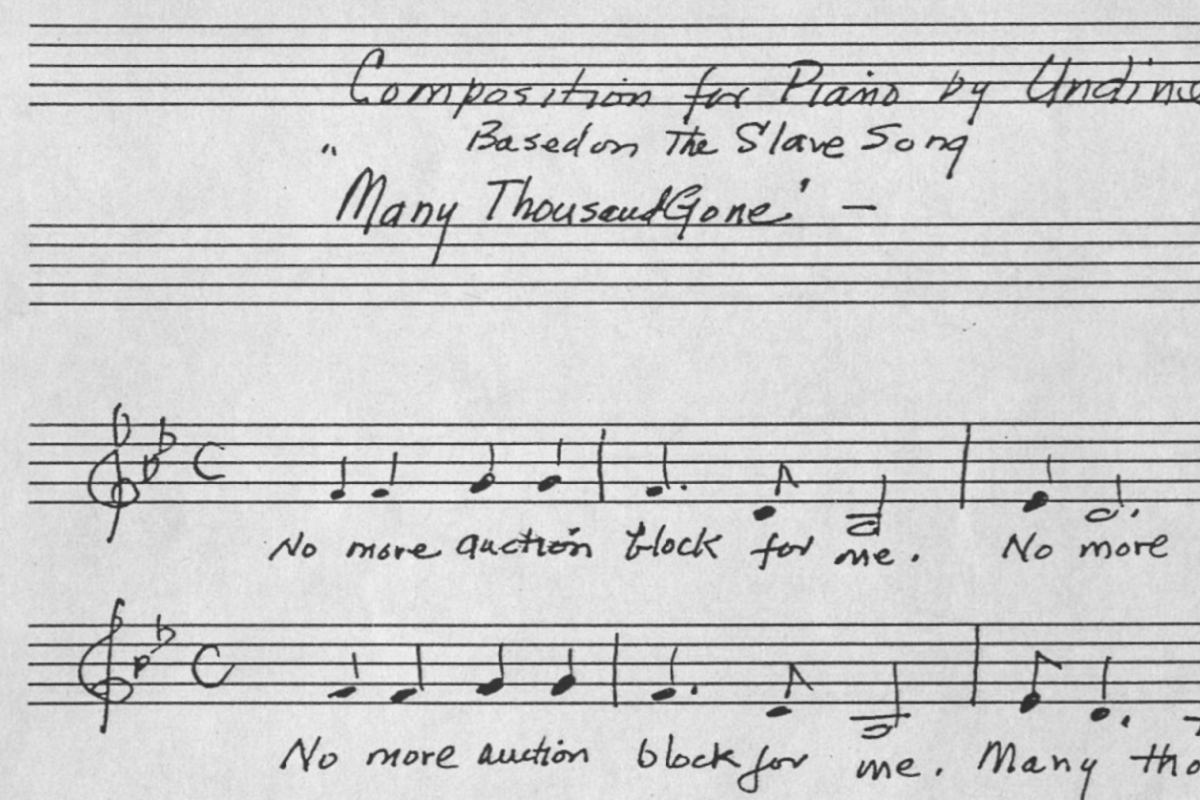 Composition for Piano by Undine
Based on The Slave Song
"Many Thousand Gone" —
No more auction block for me. No more
No more auction block for me. Many tho